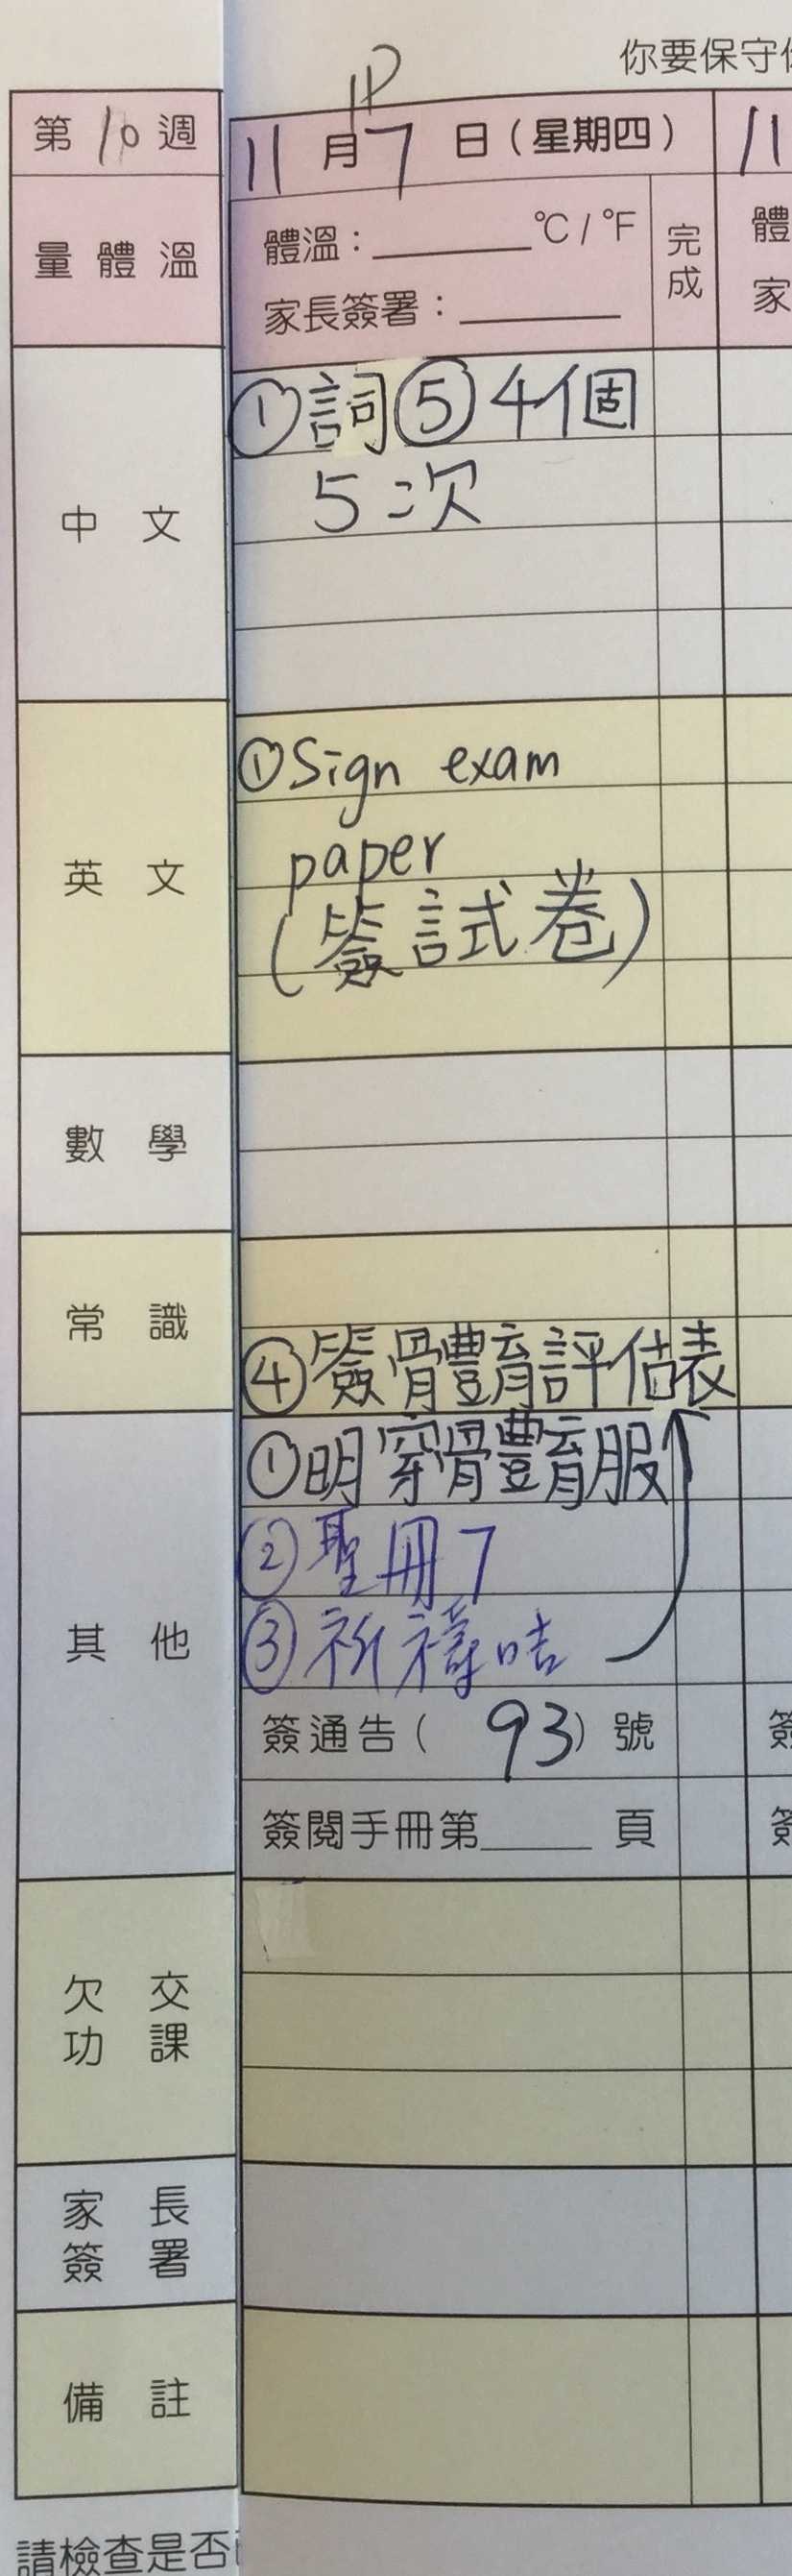 你要保守
1P
第10週
11月7日(星期四)
11
量體溫
體溫：______°C / °F
完成
體
家長簽署：______
家
中文
①詞⑤4個
5次
英文
①Sign exam
paper
(簽試卷)
數學
常識
④簽體育評估表
其他
①明穿體育服
②聖冊7
③祈禱咭
簽通告( 93)號
簽
簽閱手冊第____頁
簽
欠交
功課
家長
簽署
備註
請檢查是否